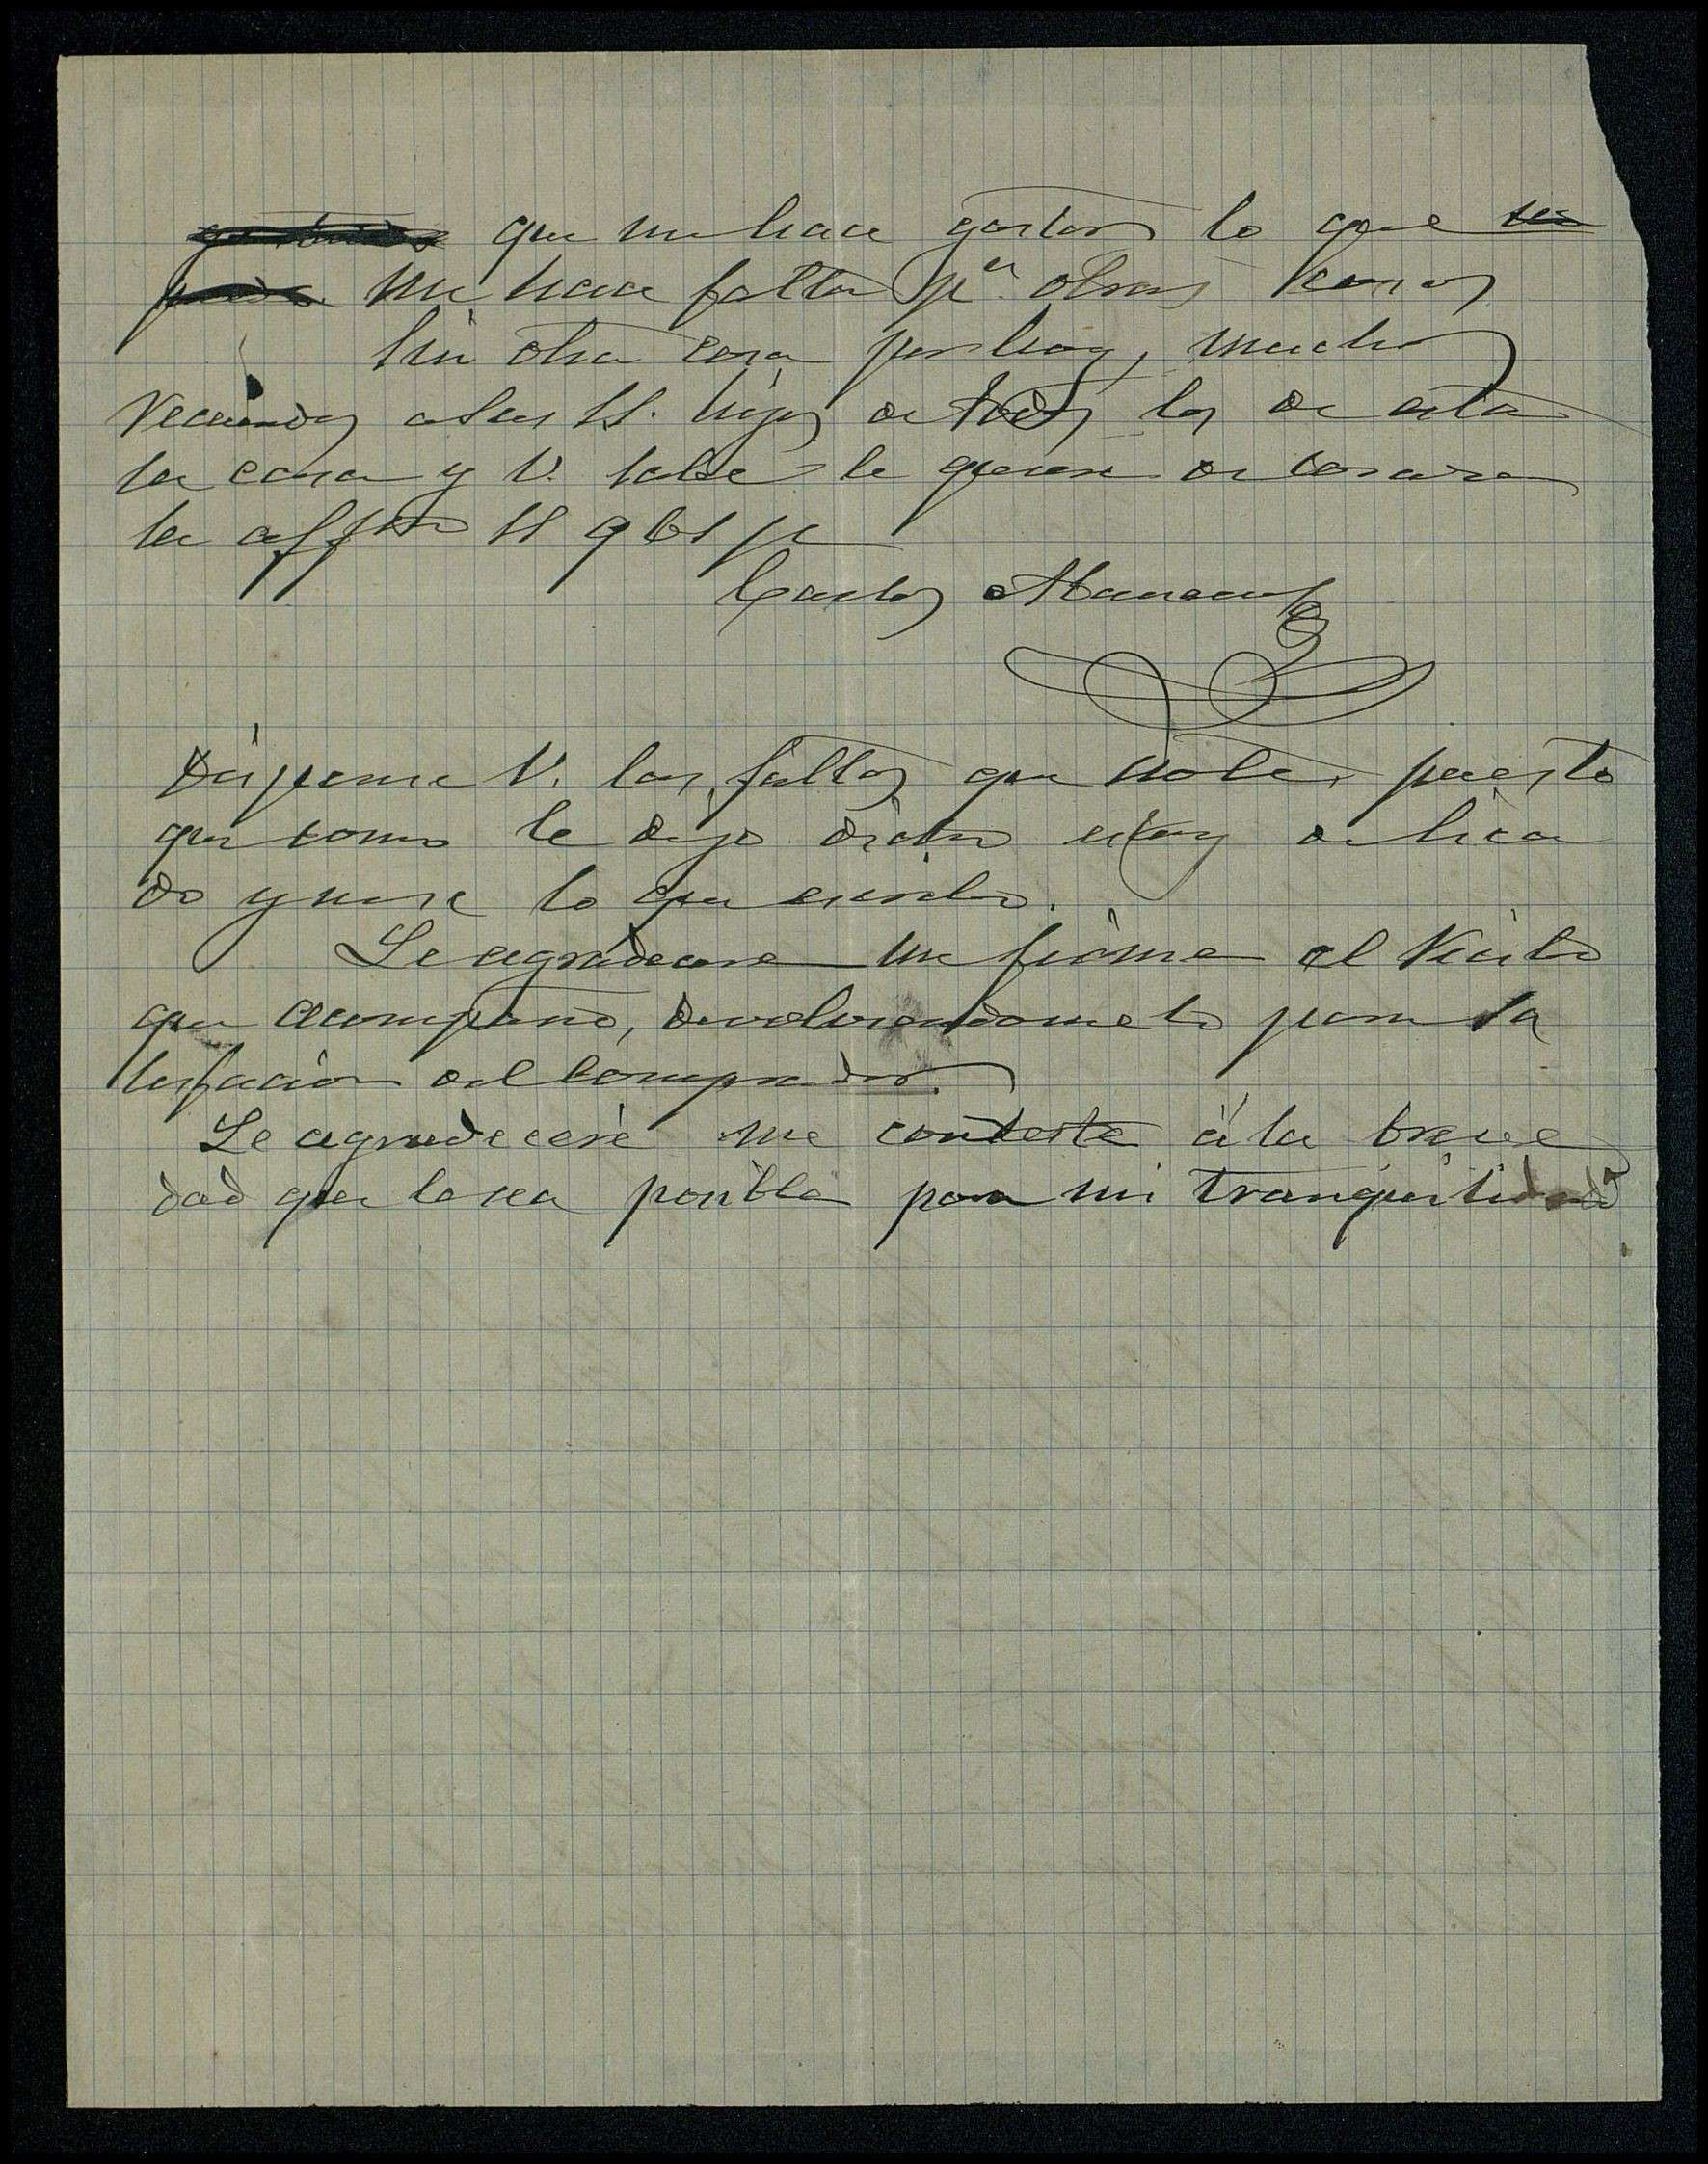 que me hace gastar lo que no
puedo me hace falta pª. otras cosas
Sin otra cosa por hoy, muchos
recuerdos a sus SS. hijos de todos los de esta
su casa y V. sabe le quiere de corazon
su affmo SS q bs m
Carlos
Dispense V. las faltas que note, puesto
que como le dejo dicho estoy delica
do y no se lo que escribo.
Le agradecere me firme el recibo
que acompaño, devolviendomelo para sa
tisfacion del comprador.
Le agradeceré me conteste á la breve
dad que le sea posible para mi tranquilidad